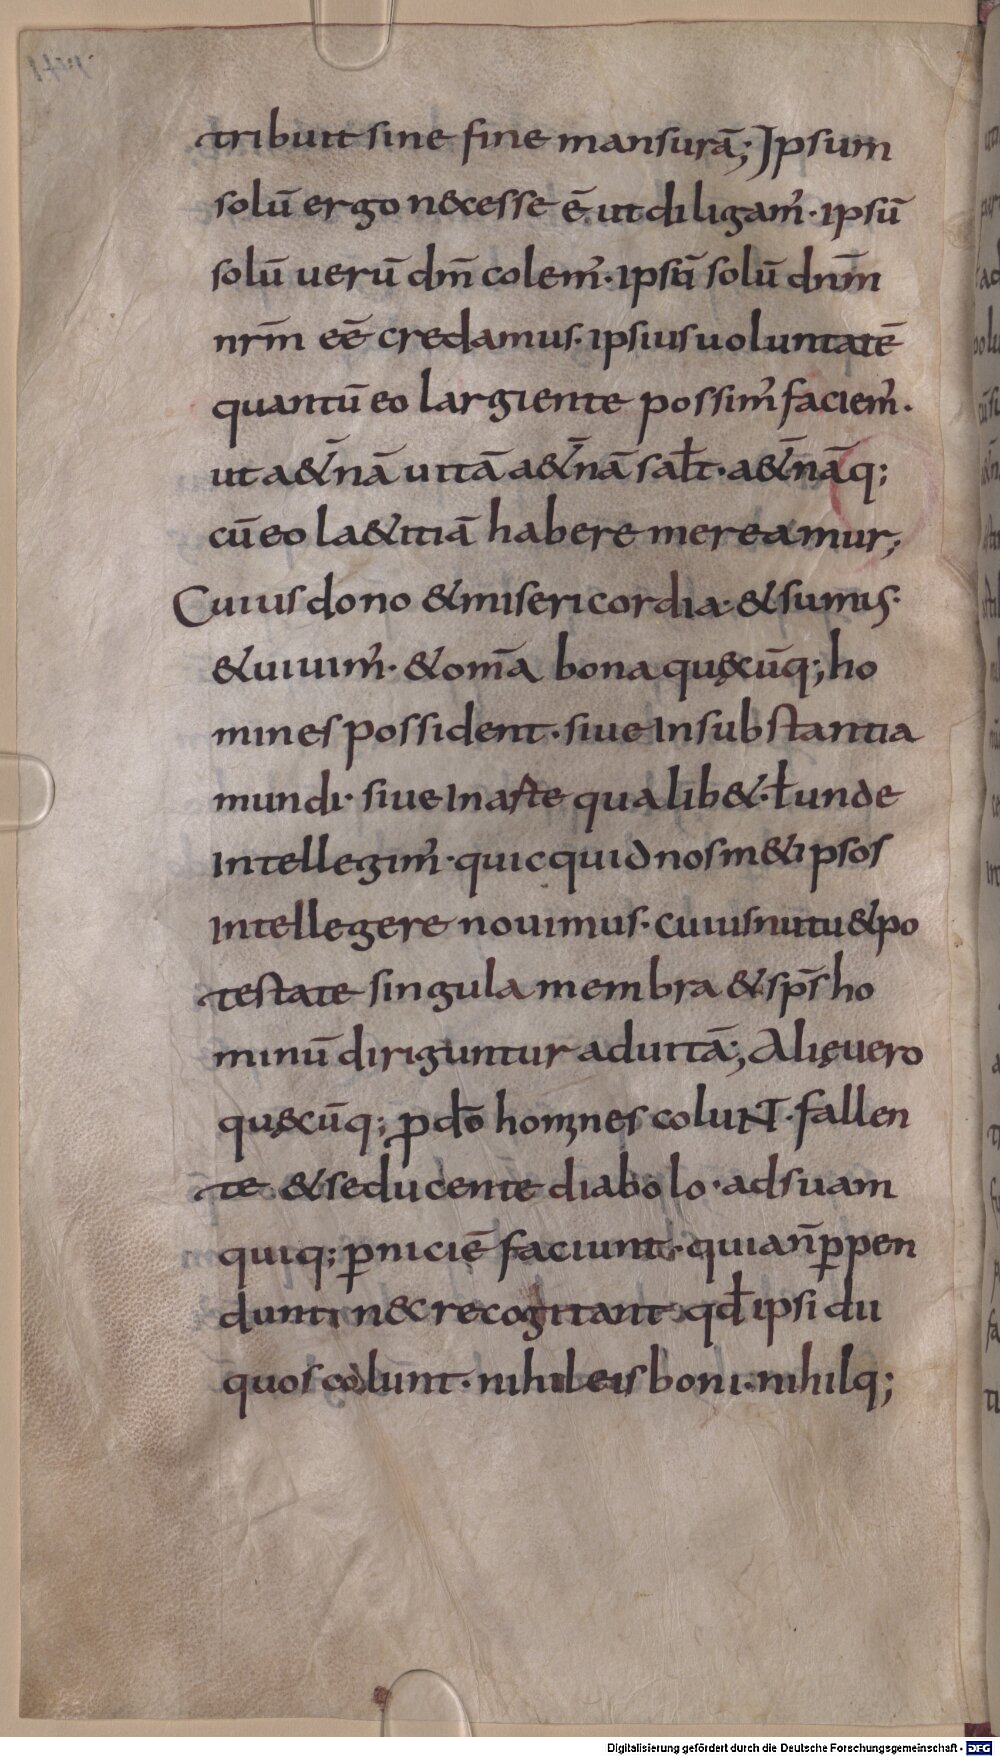 tribuit sine fine mansurā; Ipsum
solū ergo n&cesse ē ut diligam᷒· ipsū
solū uerū dm̄ colem᷒· ipsū solū dnm̄
nrm̄ eē credamus· ipsius uoluntatē
quantū eo largiente possim᷒ faciem᷒·
ut a&̄nā uitā a&̄nā salt̄· a&̄nāq;
cū eo la&itiā habere mereamur;
Cuius dono & misericordia· & sumus·
& uiuim᷒· & om̄a bona quęcūq; ho
mines possident· siue in substantia
mundi· siue in arte qualib&· ł unde
intellegim᷒· quicquid nosm&ipsos
intellegere nouimus· cuius nutu & po
testate singula membra & sps̄ ho
minū diriguntur ad uitā; Alię uero
quęcūq; ꝓ dō homines coluNT· fallen
te & seducente diabolo· ad suam
quiq; ꝑniciē faciunt· quia n̄ ꝑpen
dunt n&c recogitant qd̄ ipsi dii
quos colunt· nihil eis boni· nihilq;
Digitalisierung gefördert durch die Deutsche Forschungsgemeinschaft - DFG